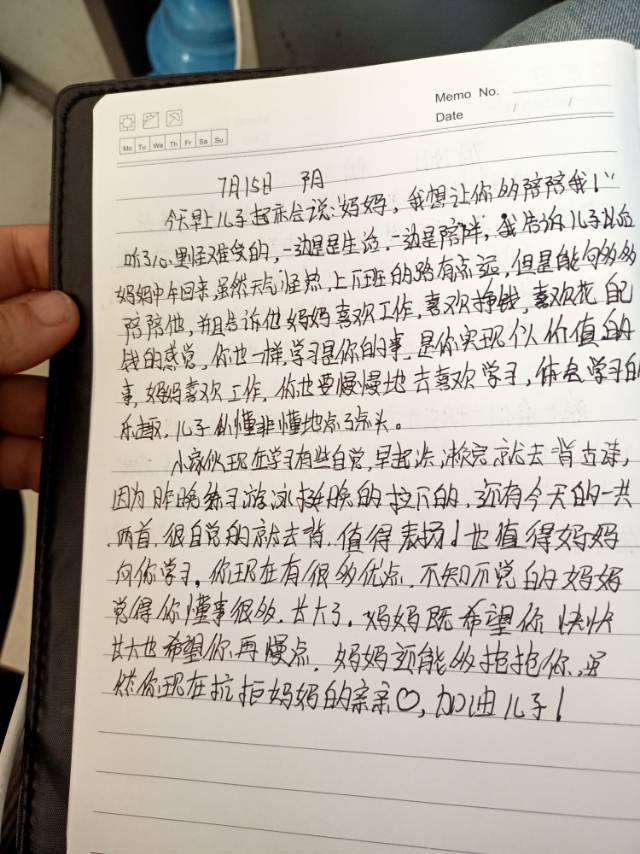 Memo No.
Date / /
Mo Tu We Th Fr Sa Su
7月15日 阴
今天早上儿子起床会说:"妈妈，我想让你多陪陪我!"
听了心里怪难受的，一边是生活，一边是陪伴，我告诉儿子以后
妈妈中午回来,虽然天气很热,上下班的路有点远,但是能够多多
陪陪他,并且告诉他妈妈喜欢工作,喜欢挣钱,喜欢花自己
钱的感觉,你也一样,学习是你的事,是你实现价值的
事,妈妈喜欢工作,你也要慢慢地去喜欢学习,体会学习的
乐趣,儿子似懂非懂地点了点头。
小家伙现在学习有些自觉,早起洗漱完就去背古诗,
因为昨晚练习游泳挺晚的拉下的,还有今天的一共
两首,很自觉的就去背.值得表扬!也值得妈妈
向你学习,你现在有很多优点,不知不觉的妈妈
觉得你懂事很多,长大了,妈妈既希望你快快
长大也希望你再慢点,妈妈还能多抱抱你,虽
然你现在抗拒妈妈的亲亲♡,加油儿子!